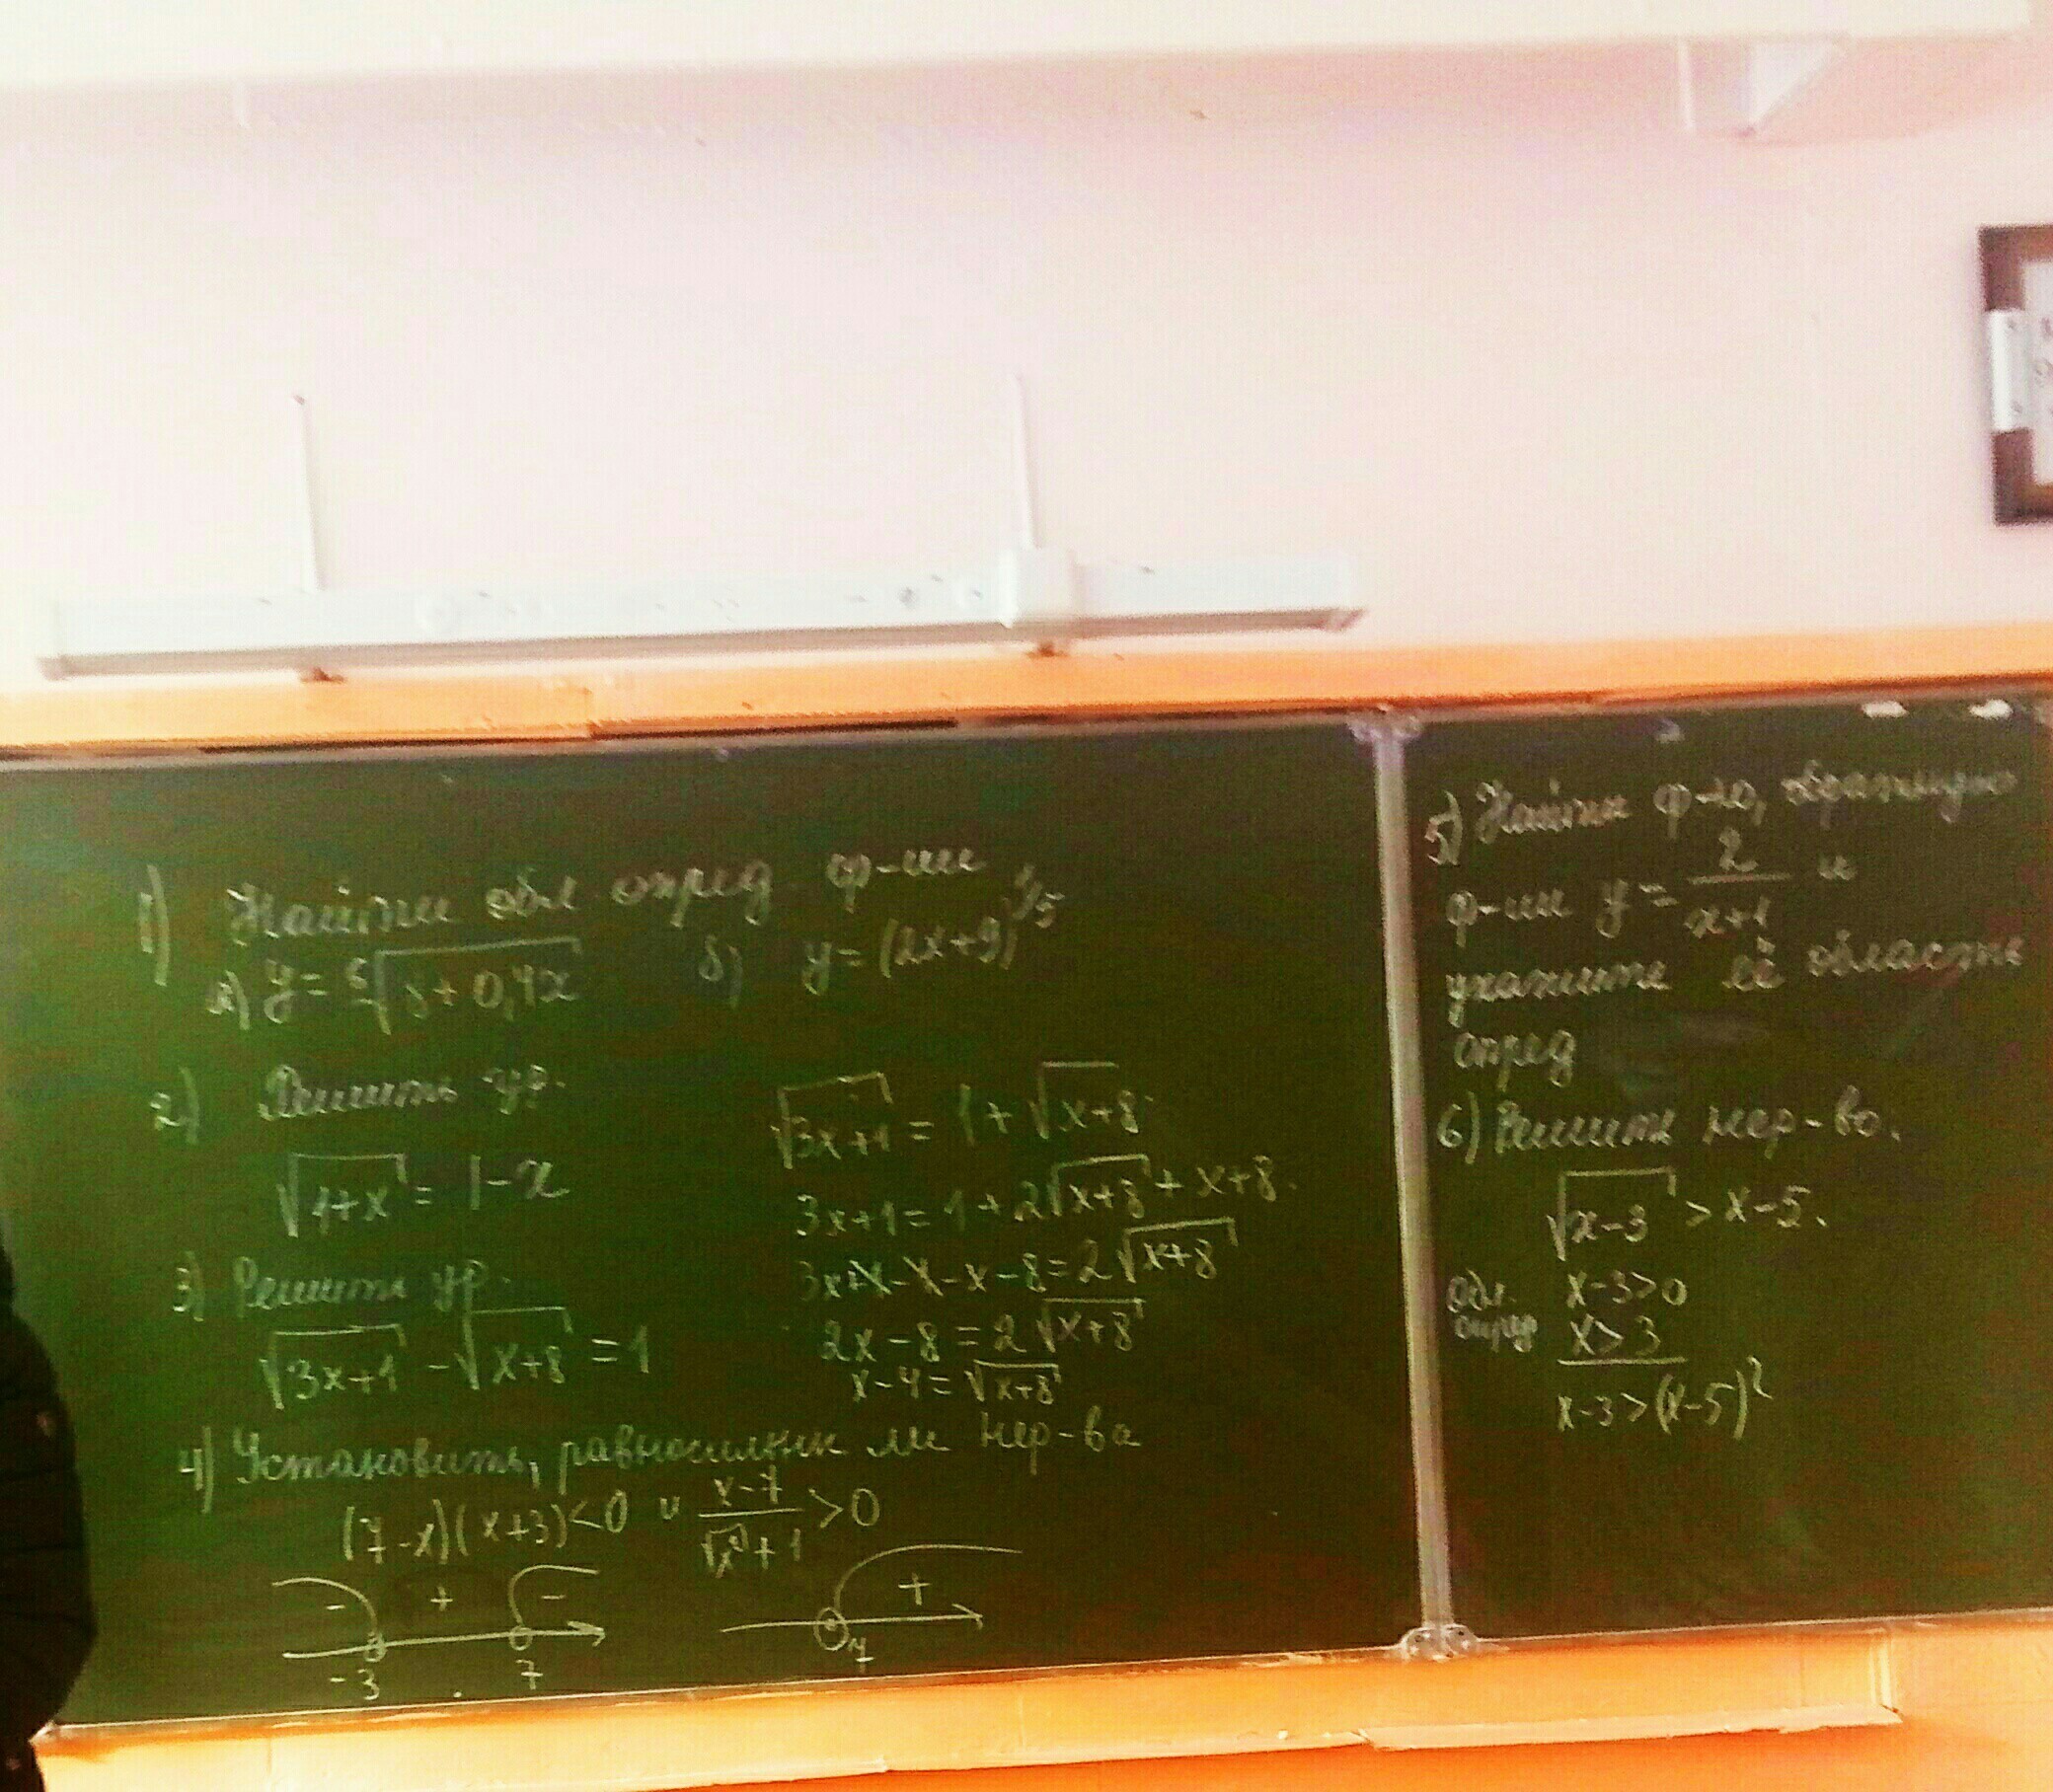 1) Найти обл опред. ф-ии
а) y = ⁶√(8+0,4x)   б) y = (2x+9)^1/5
2) Решить ур.
√(1+x) = 1-x
3) Решить ур.
√(3x+1) - √(x+8) = 1
√(3x+1) = 1+√(x+8)
3x+1 = 1+2√(x+8) + x+8.
3x+1-1-x-8 = 2√(x+8)
2x-8 = 2√(x+8)
x-4 = √(x+8)
4) Установить, равносильны ли нер-ва
(7-x)(x+3)<0 и (x-7)/(√x+1) >0
- + - +
-3 7 7
5) Найти ф-ю, обратную
ф-ии y = 2/(x+1) и
укажите её область
опред
6) Решить нер-во.
√(x-3) > x-5.
Обл. x-3>0
опред x>3
x-3>(x-5)²